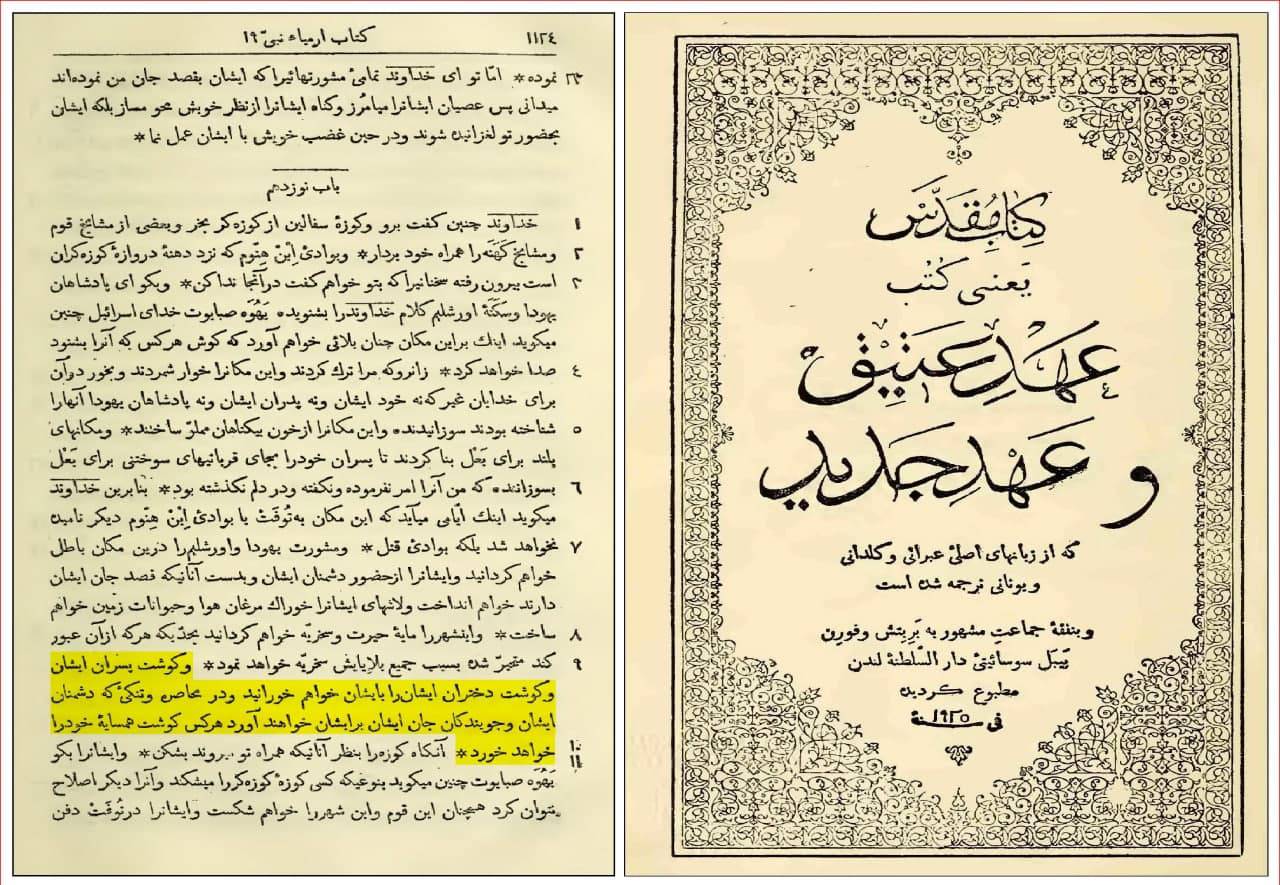 ۱۱۲٤ کتاب ارمیاء نبی ۱۹
۲۳ نموده * امّا تو ای خداوند تمامیٔ مشورتهائیرا که ایشان بقصد جان من نموده‌اند
میدانی پس عصیان ایشانرا میامرز وکناه ایشانرا ازنظر خویش محو مساز بلکه ایشان
بحضور تو لغزانیده شوند ودر حین غضب خویش با ایشان عمل نما *
باب نوزدهم
۱ خداوند چنین کفت برو وکوزهٔ سفالین از کوزه‌کر بخر وبعضی از مشایخ قوم
۲ ومشایخ کَهَنَه را همراه خود بردار * وبوادیٔ اِبْنِ هِنّوم که نزد دهنهٔ دروازهٔ کوزه‌کران
۳ است بیرون رفته سخنانیرا که بتو خواهم کفت درآنجا ندا کن * وبکو ای پادشاهان
یهودا وسکنهٔ اورشلیم کلام خداوندرا بشنوید. یَهُوَه صبایوت خدای اسرائیل چنین
میکوید. اینك براین مکان چنان بلائی خواهم آورد که کوش هرکس که آنرا بشنود
٤ صدا خواهد کرد * زانروکه مرا ترك کردند واین مکانرا خوار شمردند وبخور درآن
برای خدایان غیر که نه خود ایشان ونه پدران ایشان ونه پادشاهان یهودا آنهارا
۵ شناخته بودند سوزانیدند واین مکانرا ازخون بیکناهان مملوّ ساختند * ومکانهای
بلند برای بَعْل بنا کردند تا پسران خودرا بجای قربانیهای سوختنی برای بَعْل
٦ بسوزانند که من آنرا امر نفرموده ونکفته ودر دلم نکذشته بود * بنابرین خداوند
میکوید اینك ایّامی میآید که این مکان به تُوفَتْ یا بوادیٔ اِبْنِ هِنّوم دیکر نامیده
۷ نخواهد شد بلکه بوادیٔ قتل * ومشورت یهودا واورشلیمرا درین مکان باطل
خواهم کردانید وایشانرا ازحضور دشمنان ایشان وبدست آنانیکه قصد جان ایشان
دارند خواهم انداخت ولاشهای ایشانرا خوراك مرغان هوا وحیوانات زمین خواهم
۸ ساخت * واینشهررا مایهٔ حیرت وسخریّه خواهم کردانید بحدّیکه هرکه ازآن عبور
۹ کند متحیّر شده بسبب جمیع بلایایش سخریّه خواهد نمود * وکوشت پسران ایشان
وکوشت دختران ایشان‌را بایشان خواهم خورانید ودر محاصره وتنکیٔ که دشمنان
ایشان وجویندکان جان ایشان برایشان خواهند آورد هرکس کوشت همسایهٔ خودرا
۱۰ خواهد خورد * آنکاه کوزه‌را بنظر آنانیکه همراه تو میروند بشکن * وایشانرا بکو
۱۱ یَهُوَه صبایوت چنین میکوید بنوعیکه کسی کوزهٔ کوزه‌کررا میشکند وآنرا دیکر اصلاح
نتوان کرد همچنان این قوم واین شهررا خواهم شکست وایشانرا درتُوفَتْ دفن
کِتاب مُقَدَّس
یَعنی کُتُب
عَهْدِ عَتیق
و عَهْدِ جَدید
که از زبانهای اصلیٔ عبرانی و کلدانی
و یونانی ترجمه شده است
و بنفقهٔ جماعتِ مشهور به بَرِیتِش وفورِن
بَیبَل سوسائیتیٔ دار السّلطنهٔ لندن
مطبوع کردید
فی سنهٔ ۱۹۲۵